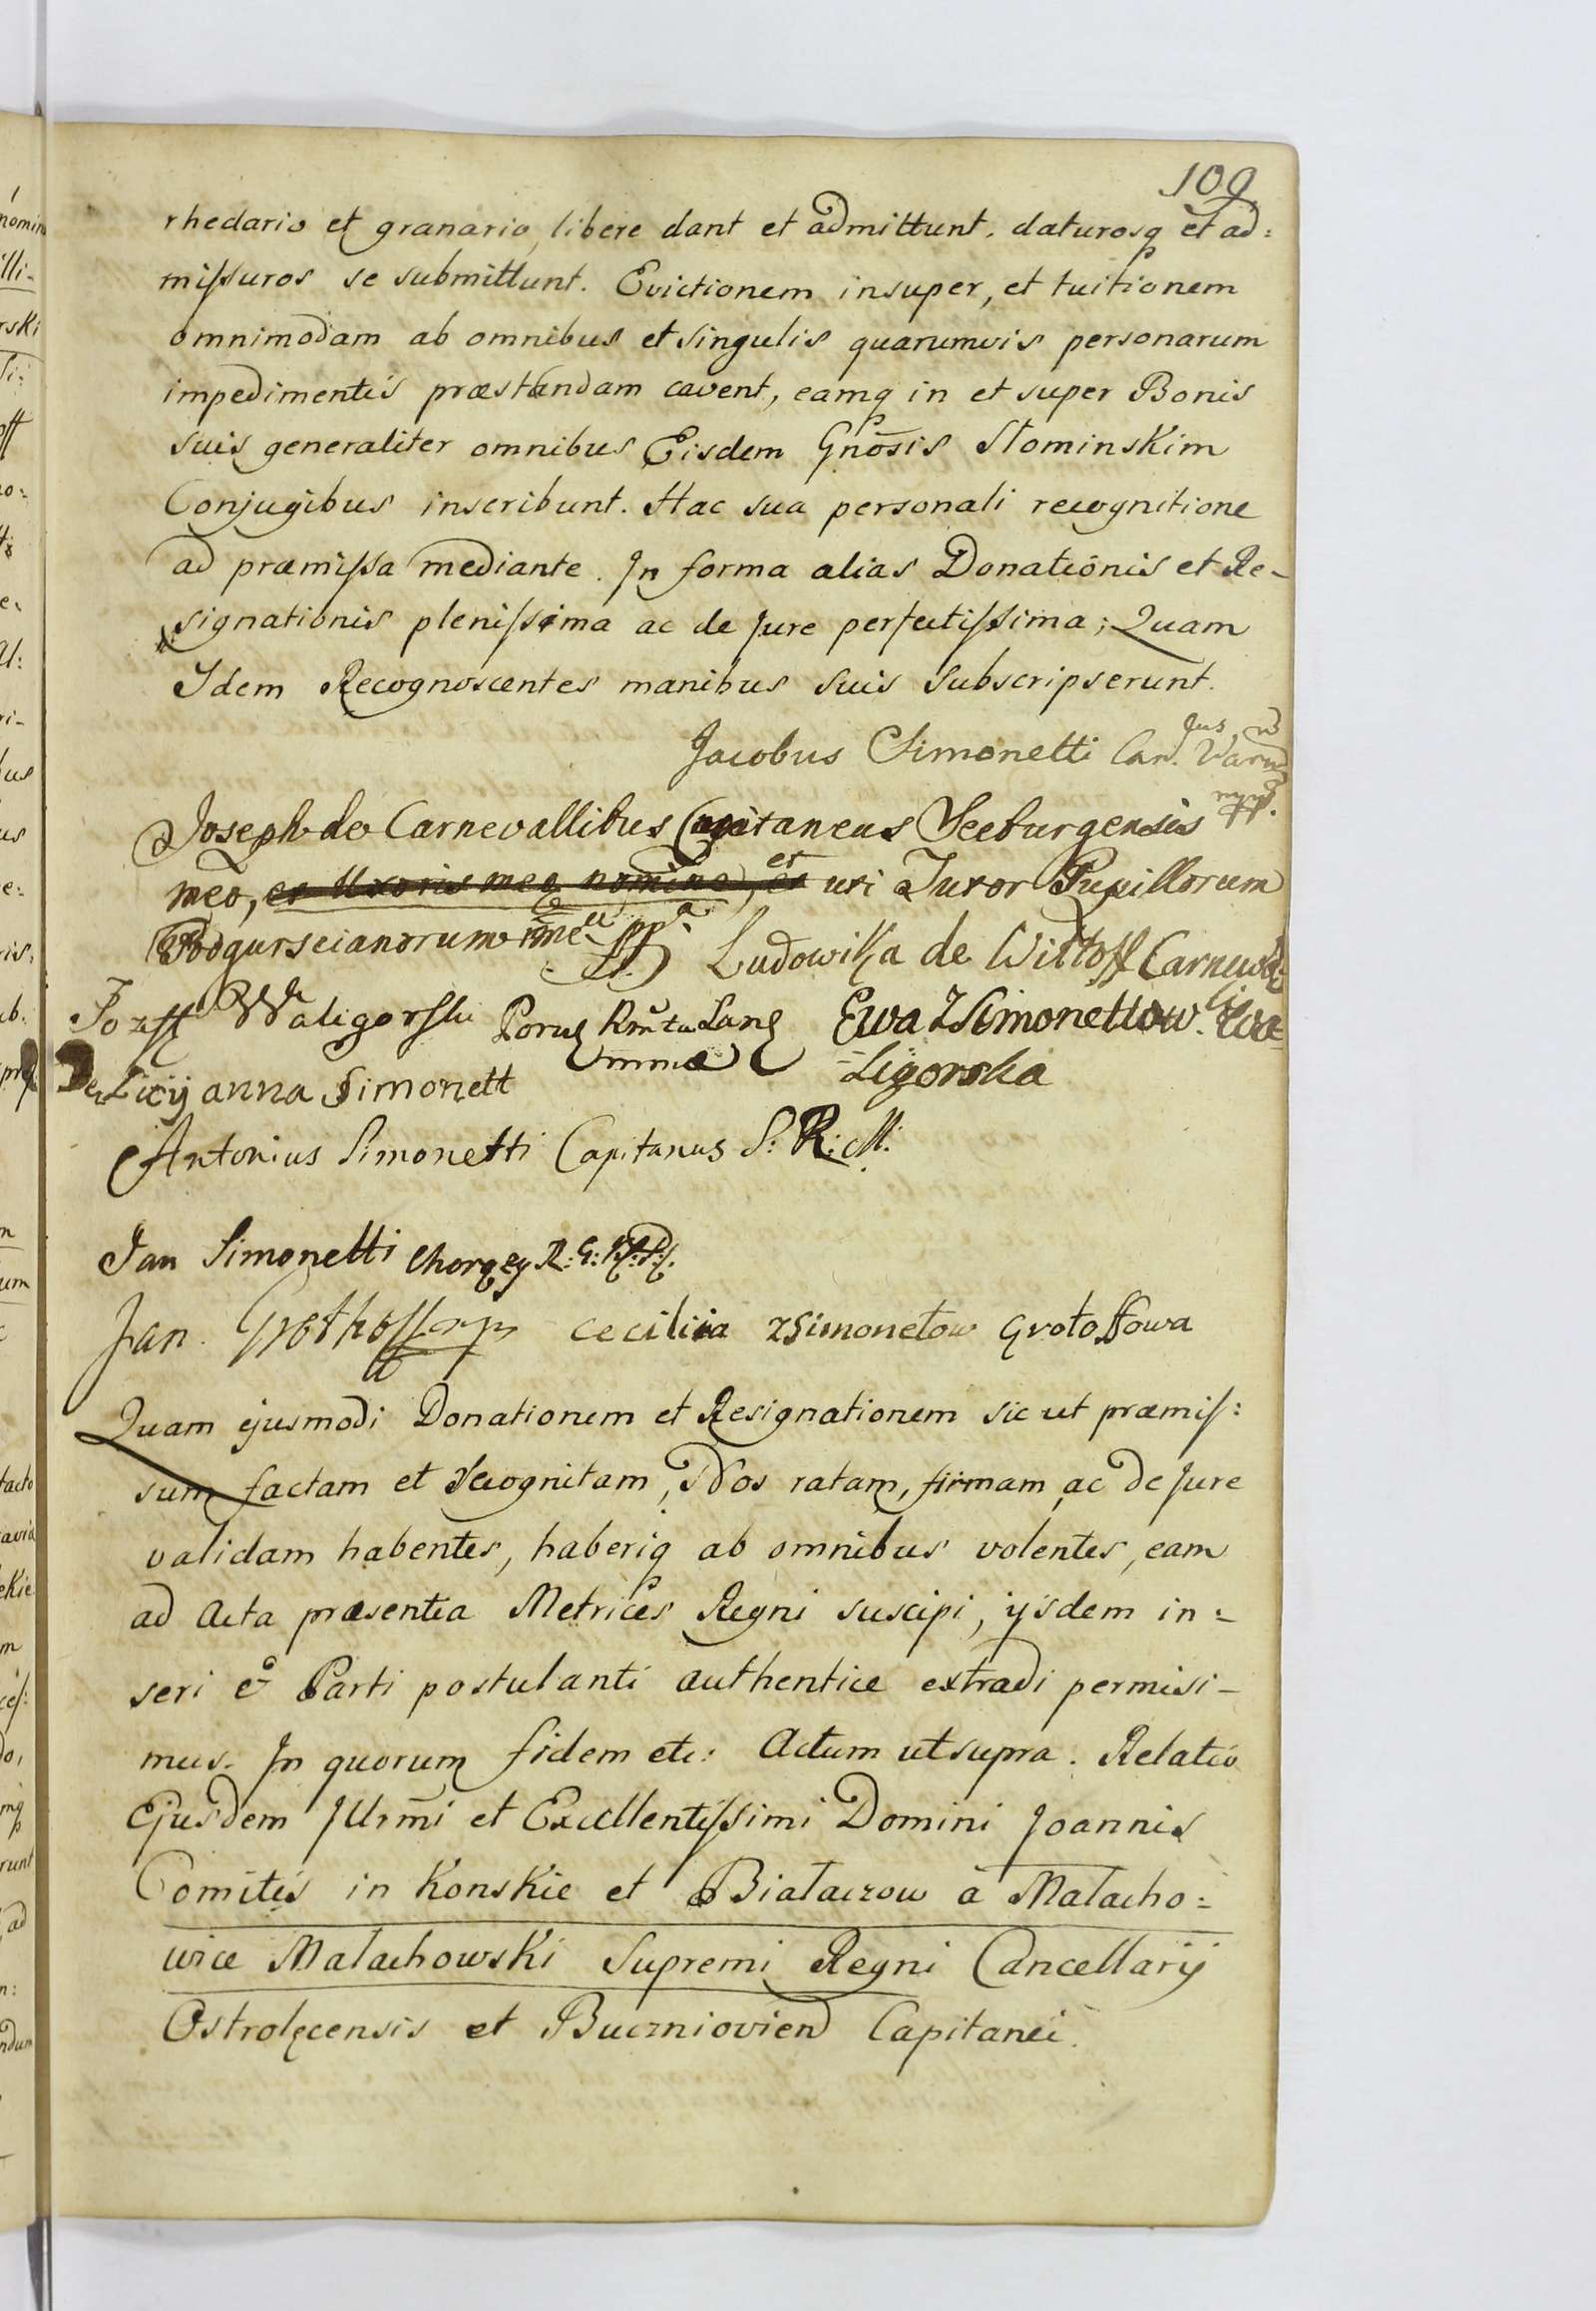 109
rhedario et granario, libere dant et admittunt, daturosq et ad:
missuros se submittunt. Evictionem insuper, et tuitionem
omnimodam ab omnibus et singulis quarumvis personarum
impedimentis præstandam cavent, eamq in et super Bonis
suis generaliter omnibus Eisdem Gnōsis Słominskim
Conjugibus inscribunt. Hac sua personali recognitione
ad præmissa mediante. In forma alias Donationis et Re-
signationis plenissima ac de Jure perfectissima; Quam
Idem Recognoscentes manibus suis subscripserunt.
Jacobus Simonetti Can. Varm
Joseph de Carnevallibus Capitaneus Seeburgensis mpp.
meo, et Uxoris meo nomine, et uti Tutor Pupillorum
Podgurscianorum
Ludowika de Wittoff Carneval
Jozeff Waligorski Ewa z Simonettow Wa
Ligorska
anna Simonett
Antonius Simonetti Capitanus S: R: M:
Jan Simonetti Chorązy R: G:
Jan Grothoff mp ceciliia zSimonetow Grotoffowa
Quam ejusmodi Donationem et Resignationem sic ut præmis:
sum factam et recognitam, Nos ratam, firmam, ac de Jure
validam habentes, haberiq ab omnibus volentes, eam
ad Acta præsentia Metrices Regni suscipi, ijsdem in:
seri & Parti postulanti authentice extradi permisi-
mus. In quorum fidem etc: Actum ut supra. Relatio
Ejusdem Jllrm̄i et Excellentissimi Domini Joannis
Comitis in Konskie et Białaczow à Małacho:
wice Małachowski Supremi Regni Cancellarij
Ostrołęcensis et Buczniovien Capitanei.